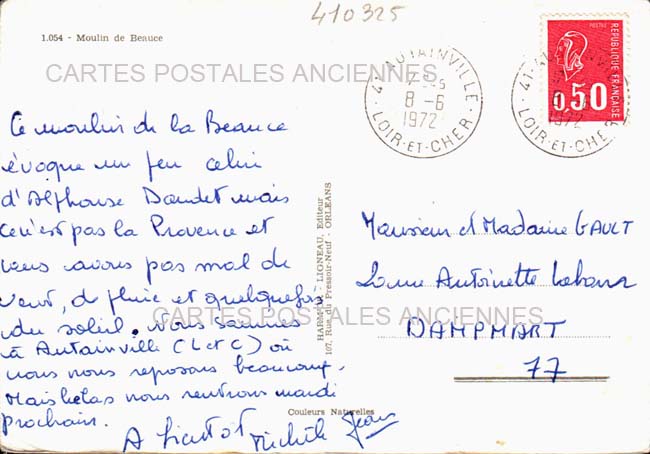 410325
1.054 - Moulin de Beauce
CARTES POSTALES ANCIENNES
41 AUTAINVILLE
8 -6
1972
LOIR-ET-CHER
POSTES
REPUBLIQUE FRANÇAISE
0,50
41
1972
LOIR-ET-CHER
Ce moulin de la Beauce
évoque un peu celui
d'Alphonse Daudet mais
ce n'est pas la Provence et
nous avons pas mal de
vent, de pluie et quelquefois
du soleil. Nous sommes
à Autainville (L et C) où
nous nous reposons beaucoup.
Mais helas nous rentrons mardi
prochain.
A bientôt
Michèle Jean
HARMIGNIES LIGNEAU, Editeur
107, Rue du Pressoir-Neuf - ORLEANS
Couleurs Naturelles
CARTES POSTALES ANCIENNES
Monsieur et Madame GAULT
Antoinette
DAMPMART
77